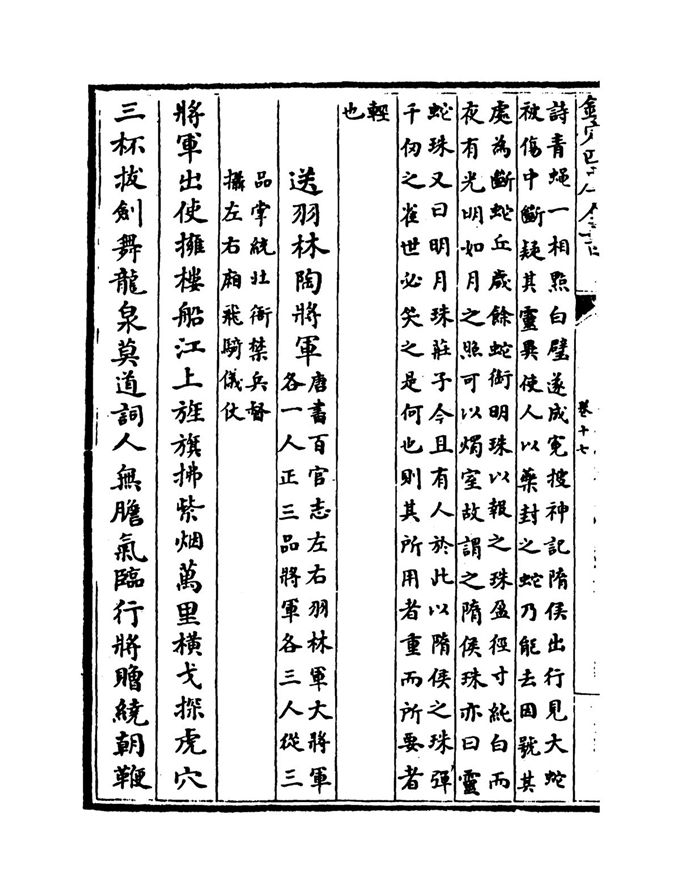 卷十七
詩青蠅一相㸃白璧遂成寃搜神記隋侯出行見大蛇
被傷中斷疑其靈異使人以藥封之蛇乃能去因號其
處為斷蛇丘歲餘蛇銜明珠以報之珠盈徑寸純白而
夜有光明如月之照可以燭室故謂之隋侯珠亦曰靈
蛇珠又曰明月珠莊子今且有人於此以隋侯之珠彈
千仞之雀世必笑之是何也則其所用者重而所要者
輕
也
送羽林陶將軍
唐書百官志左右羽林軍大將軍
各一人正三品將軍各三人從三
品掌統北衙禁兵督
攝左右廂飛騎儀仗
將軍出使擁樓船江上旌旗拂紫烟萬里横戈探虎穴
三杯拔劍舞龍泉莫道詞人無膽氣臨行將贈繞朝鞭